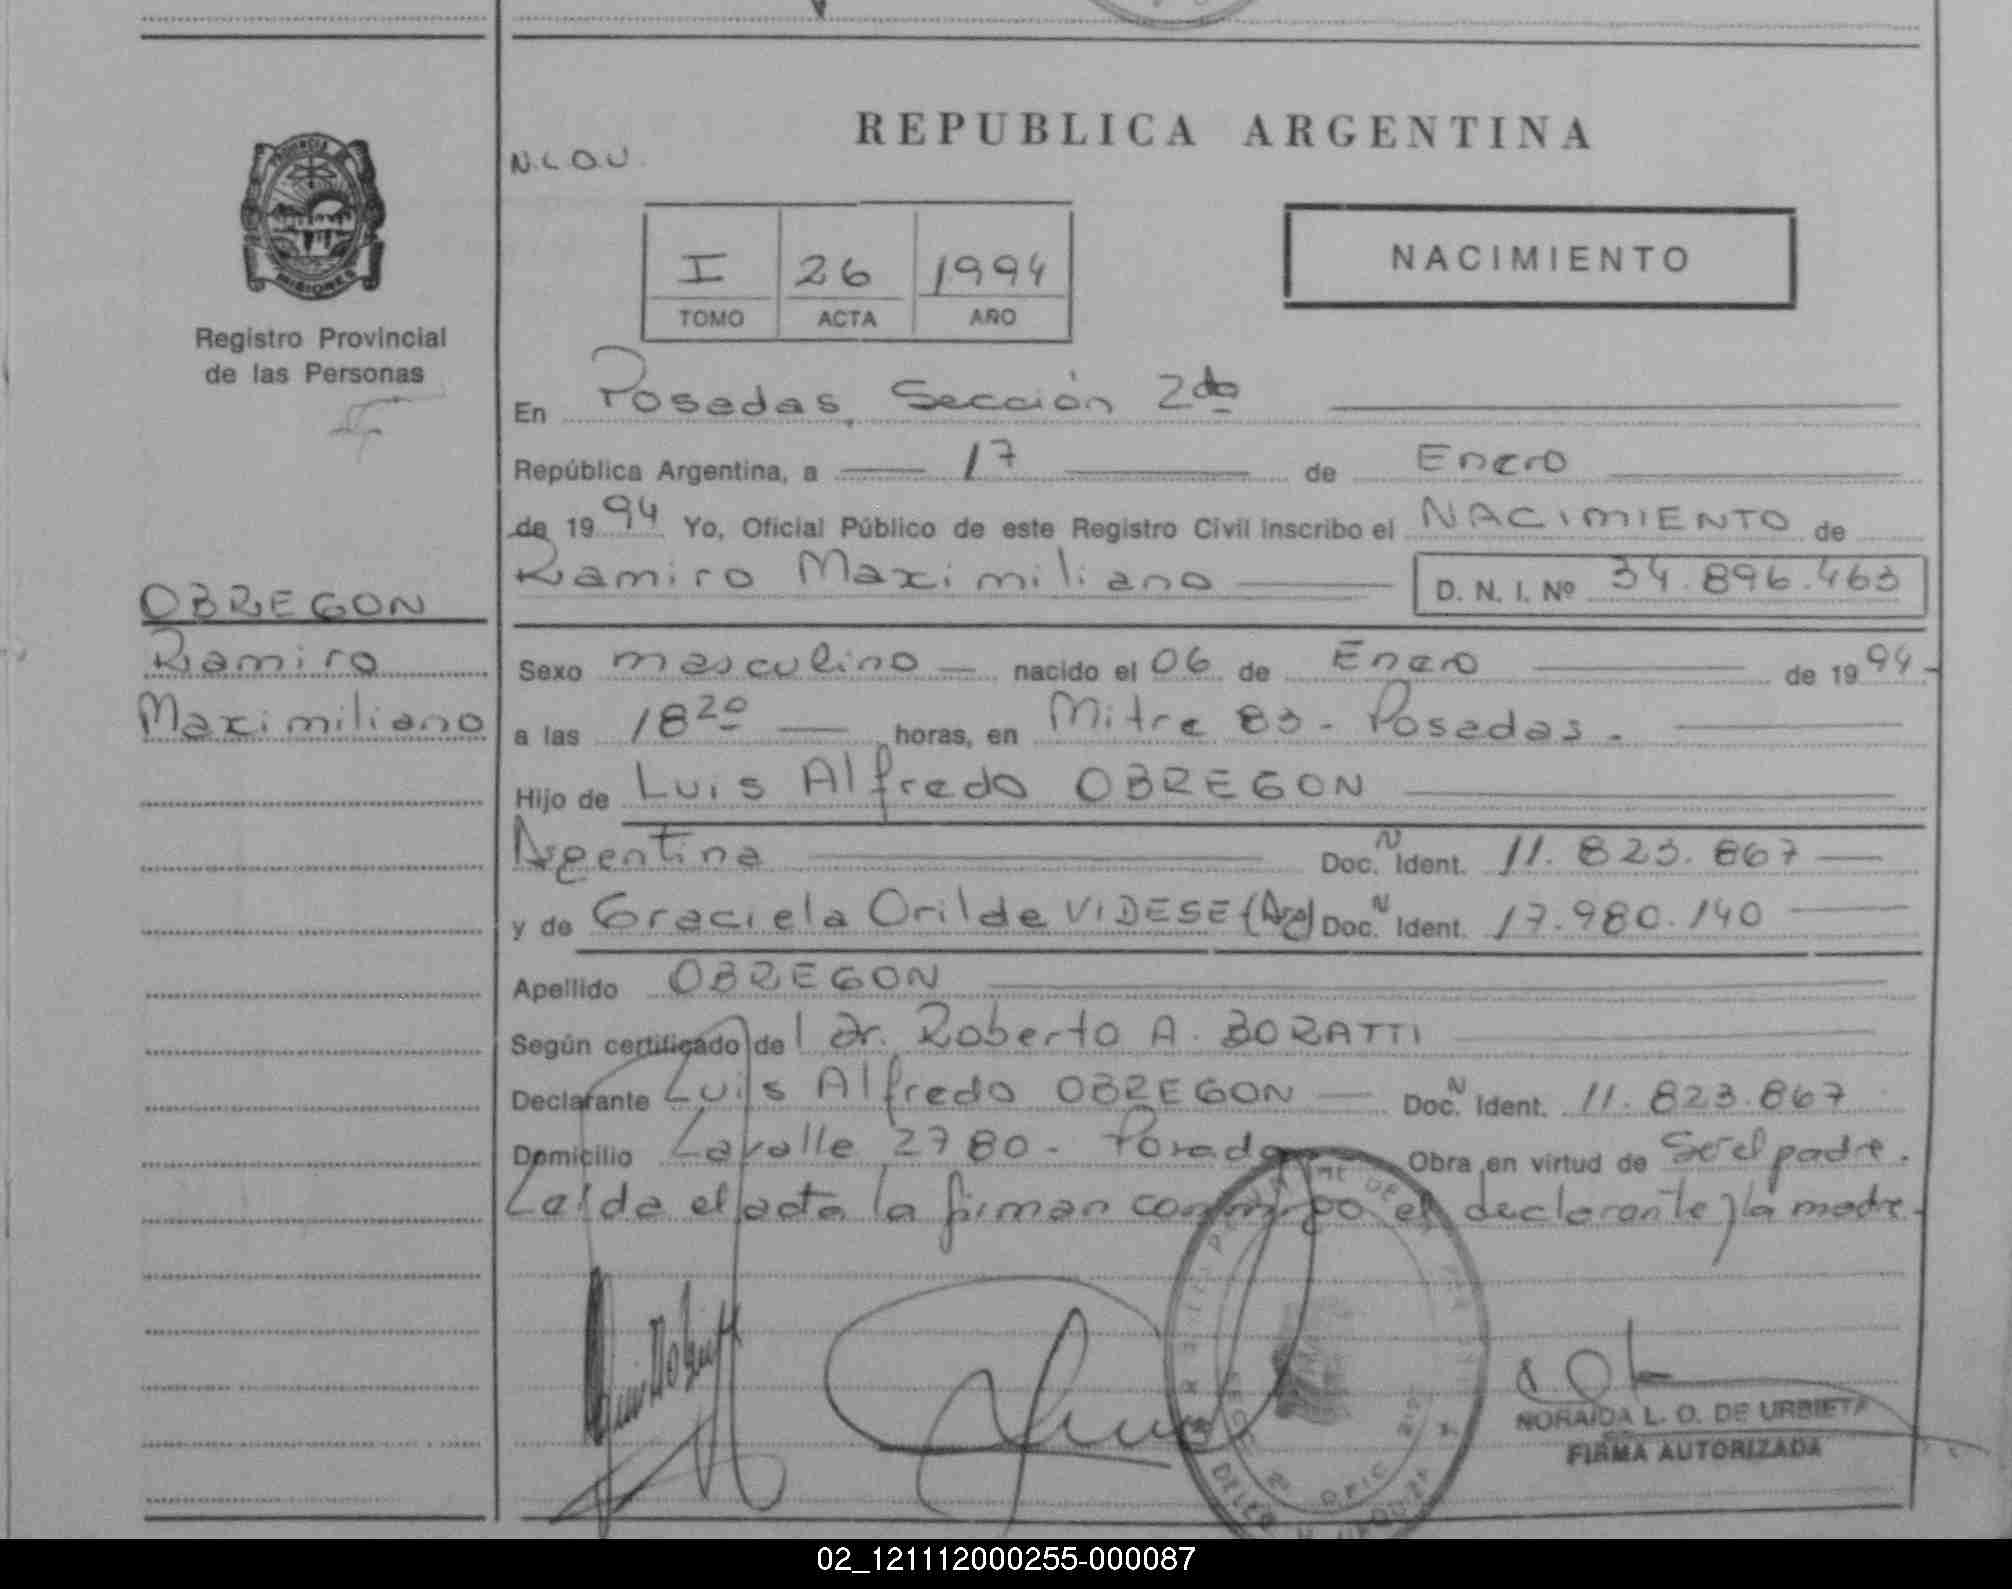 REPUBLICA ARGENTINA
N.L.O.U.
PROVINCIA DE
MISIONES
Registro Provincial
de las Personas
I 26 1994
TOMO ACTA AÑO
NACIMIENTO
En Posadas, Sección 2da
República Argentina, a 17 de Enero
de 1994 Yo, Oficial Público de este Registro Civil inscribo el NACIMIENTO de
Ramiro Maximiliano D. N. I. Nº 34.896.463
OBREGON
Ramiro
Maximiliano
Sexo masculino nacido el 06 de Enero de 1994-
a las 18 20 horas, en Mitre 83 - Posadas.
Hijo de Luis Alfredo OBREGON
Argentina Doc. N Ident. 11.823.867
y de Graciela Orilde VIDESE (Arg) Doc. N Ident. 17.980.140
Apellido OBREGON
Según certificado del Dr. Roberto A. BORATTI
Declarante Luis Alfredo OBREGON Doc. N Ident. 11.823.867
Domicilio Lavalle 2780 - Posadas Obra en virtud de Ser el padre.
Leida el acta la firman conmigo el declarante y la madre.
NORAIDA L. O. DE URBIETA
FIRMA AUTORIZADA
02_121112000255-000087